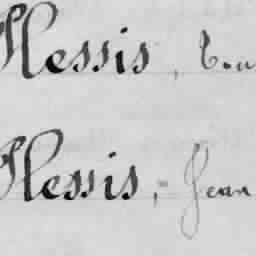 Plessis, Cou
Plessis, Jean